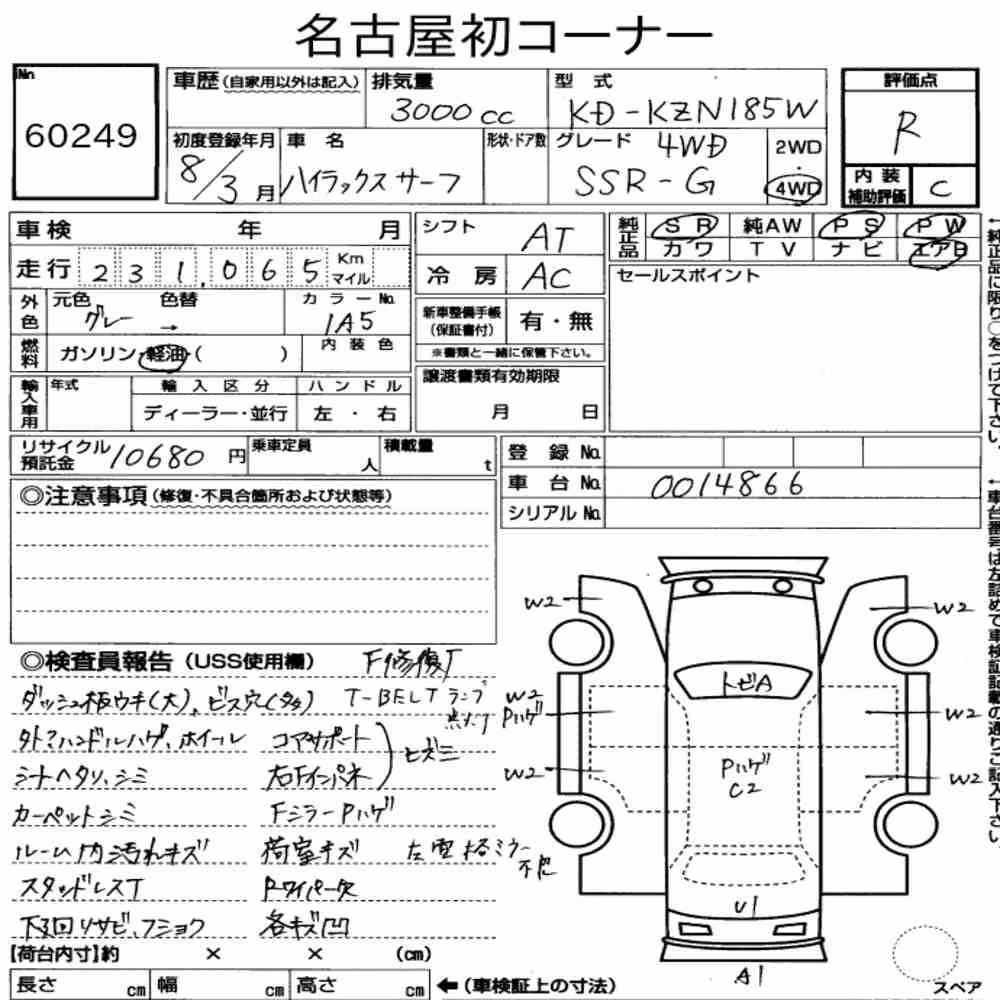 名古屋初コーナー
No
60249
車歴(自家用以外は記入)
排気量
3000cc
型式
KD-KZN185W
評価点
R
初度登録年月
8/3月
車名
ハイラックスサーフ
形状・ドア数
グレード 4WD
SSR-G
2WD
・
4WD
内装
補助評価
C
車検 年 月
走行 231,065 Km
マイル
外色
元色 色替
グレー →
カラーNo.
1A5
燃料
ガソリン・軽油・( )
内装色
輸入車用
年式
輸入区分
ハンドル
ディーラー・並行
左・右
シフト
AT
冷房
AC
新車整備手帳
(保証書付)
有・無
※書類と一緒に保管下さい。
譲渡書類有効期限
月 日
純正品
SR 純AW PS PW
カワ TV ナビ エアB
セールスポイント
リサイクル
預託金
10680円
乗車定員
人
積載量
t
登録No.
車台No.
0014866
シリアルNo.
◎注意事項(修復・不具合箇所および状態等)
◎検査員報告(USS使用欄) F修復T
ダッシュ板ウキ(大)、ビス穴(多) T-BELTランプ
点灯
外ドアハンドルハゲ、ホイール コアサポート
シートヘタリ、シミ 右Fインパネ
ヒズミ
カーペットシミ FミラーPハゲ
ルーム内汚れキズ 荷室キズ
スタッドレスT Rワイパー欠
下回リサビ、フショク 各キズ凹
【荷台内寸】約 × × (cm)
長さ cm 幅 cm 高さ cm
←(車検証上の寸法)
W2
W2
W2
Pハゲ
W2
W2
W2
トビA
Pハゲ
C2
U1
A1
スペア
←純正品に限り○をつけて下さい。
←車台番号は左詰めで車検証記載の通りご記入下さい。